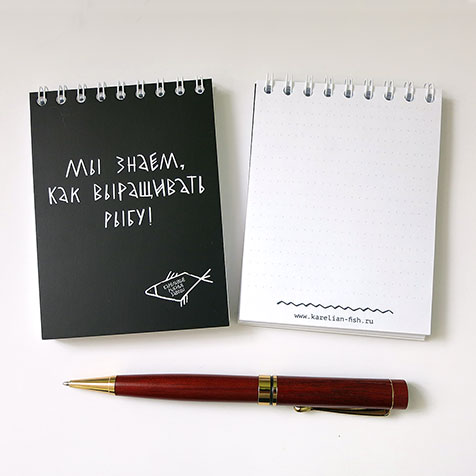 Мы знаем,
как выращивать
рыбу!
Карельские
рыбные
заводы
www.karelian-fish.ru